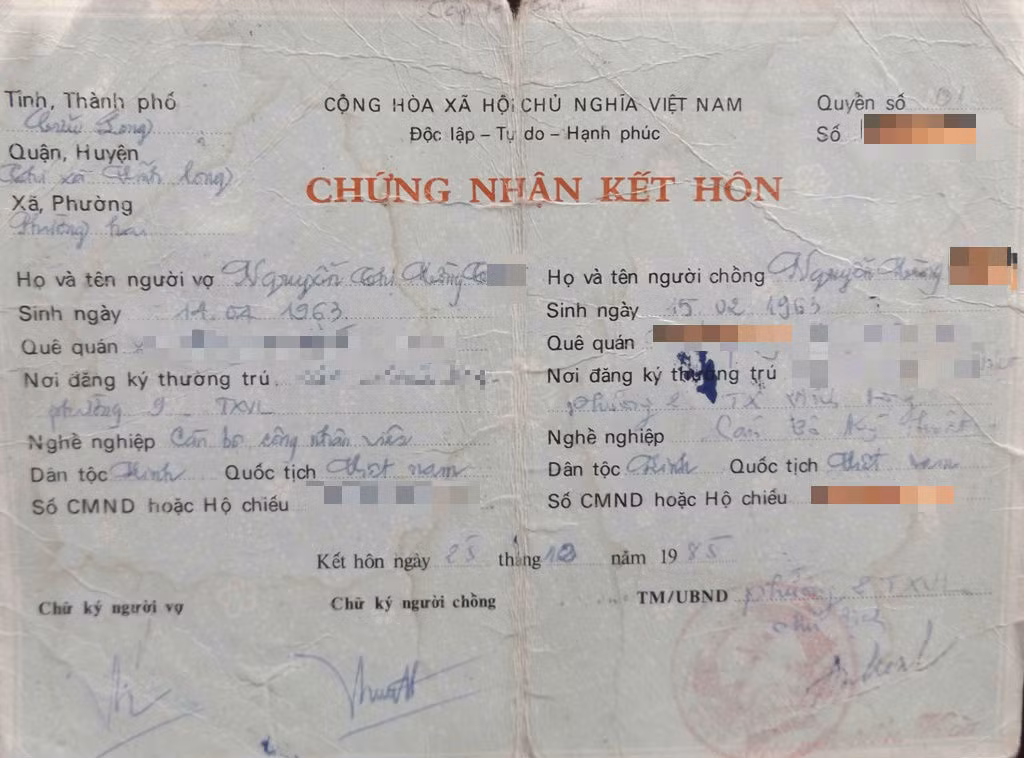 Tỉnh, Thành phố
Cửu Long
Quận, Huyện
Thị xã Vĩnh Long
Xã, Phường
Phường hai
CỘNG HÒA XÃ HỘI CHỦ NGHĨA VIỆT NAM
Độc lập – Tự do – Hạnh phúc
Quyển số
Số
CHỨNG NHẬN KẾT HÔN
Họ và tên người vợ Nguyễn Thị Hường
Sinh ngày 1963
Quê quán
Nơi đăng ký thường trú
phường 9 – TXVL
Nghề nghiệp Cán bộ công nhân viên
Dân tộc Kinh Quốc tịch Việt nam
Số CMND hoặc Hộ chiếu
Họ và tên người chồng Nguyễn
Sinh ngày 15 02 1963
Quê quán
Nơi đăng ký thường trú
phường 2 TX Vĩnh Long
Nghề nghiệp Cán Bộ Kỹ thuật
Dân tộc Kinh Quốc tịch Việt nam
Số CMND hoặc Hộ chiếu
Kết hôn ngày 25 tháng 12 năm 1985
Chữ ký người vợ
Chữ ký người chồng
TM/UBND phường 2 TXVL